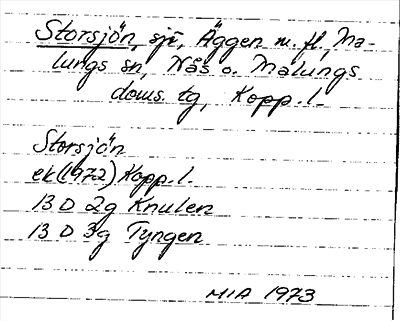 Storsjön, sjö, Äggen m. fl., Ma-
lungs sn, Nås o. Malungs
doms tg, Kopp. l.
Storsjön
ek (1972) Kopp. l.
13 D 2g Knulen
13 D 3g Tyngen
MIA 1973